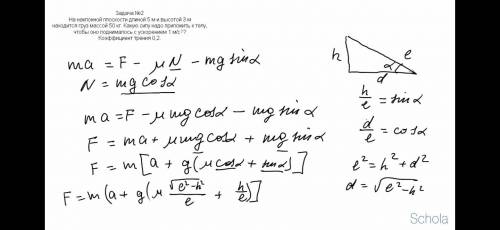 Задача №2
На наклонной плоскости длиной 5 м и высотой 3 м
находится груз массой 50 кг. Какую силу надо приложить к телу,
чтобы оно поднималось с ускорением 1 м/с²?
Коэффициент трения 0,2.
ma = F - μN - mg sinα
N = mg cosα
ma = F - μmg cosα - mg sinα
F = ma + μmg cosα + mg sinα
F = m[a + g(μcosα + sinα)]
F = m(a + g(μ √(e²-h²)/e + h/e)]
h
e
α
d
h/e = sinα
d/e = cosα
e² = h² + d²
d = √(e²-h²)
Schola